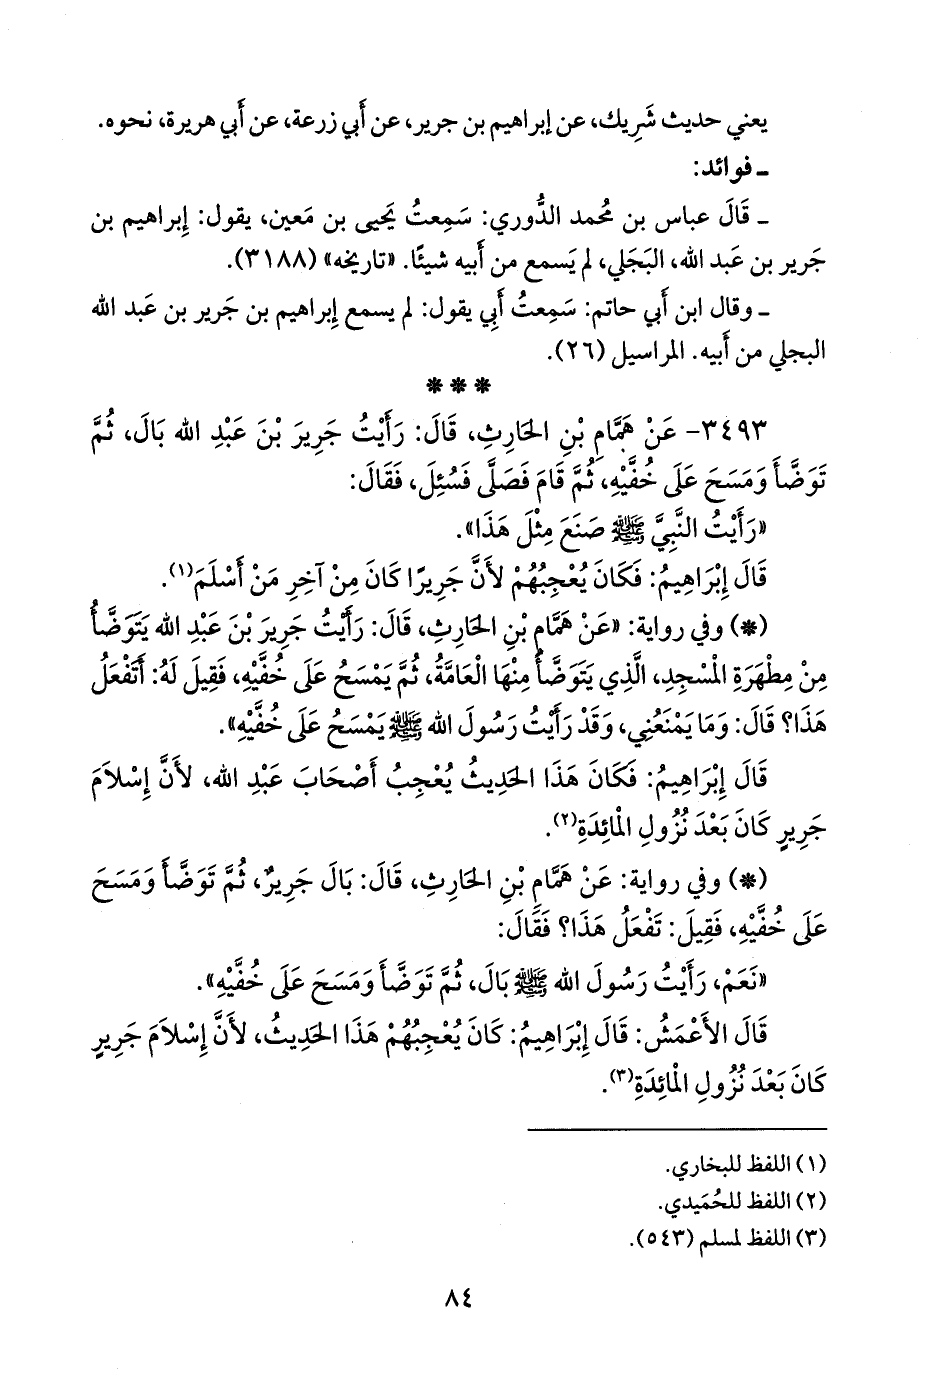 يعني حديث شَرِيك، عن إبراهيم بن جرير، عن أَبي زرعة، عن أَبي هريرة، نحوه.
ـ فوائد:
ـ قَالَ عباس بن مُحمد الدُّوري: سَمِعتُ يَحيى بن مَعين، يقول: إِبراهيم بن
جَرير بن عَبد الله، البَجَلي، لم يَسمع من أَبيه شيئًا. «تاريخه» (٣١٨٨).
ـ وقال ابن أَبي حاتم: سَمِعتُ أَبِي يقول: لم يسمع إِبراهيم بن جَرير بن عَبد الله
البجلي من أَبيه. المراسيل (٢٦).
* * *
٣٤٩٣- عَنْ هَمَّامِ بْنِ الحَارِثِ، قَالَ: رَأَيْتُ جَرِيرَ بْنَ عَبْدِ الله بَالَ، ثُمَّ
تَوَضَّأَ وَمَسَحَ عَلَى خُفَّيْهِ، ثُمَّ قَامَ فَصَلَّى فَسُئِلَ، فَقَالَ:
«رَأَيْتُ النَّبِيَّ ﷺ صَنَعَ مِثْلَ هَذَا».
قَالَ إِبْرَاهِيمُ: فَكَانَ يُعْجِبُهُمْ لأَنَّ جَرِيرًا كَانَ مِنْ آخِرِ مَنْ أَسْلَمَ(١).
(*) وفي رواية: «عَنْ هَمَّامِ بْنِ الحَارِثِ، قَالَ: رَأَيْتُ جَرِيرَ بْنَ عَبْدِ الله يَتَوَضَّأُ
مِنْ مِطْهَرَةِ المَسْجِدِ، الَّذِي يَتَوَضَّأُ مِنْهَا الْعَامَّةُ، ثُمَّ يَمْسَحُ عَلَى خُفَّيْهِ، فَقِيلَ لَهُ: أَتَفْعَلُ
هَذَا؟ قَالَ: وَمَا يَمْنَعُنِي، وَقَدْ رَأَيْتُ رَسُولَ الله ﷺ يَمْسَحُ عَلَى خُفَّيْهِ».
قَالَ إِبْرَاهِيمُ: فَكَانَ هَذَا الحَدِيثُ يُعْجِبُ أَصْحَابَ عَبْدِ الله، لأَنَّ إِسْلاَمَ
جَرِيرٍ كَانَ بَعْدَ نُزُولِ المْائِدَةِ(٢).
(*) وفي رواية: عَنْ هَمَّامِ بْنِ الحَارِثِ، قَالَ: بَالَ جَرِيرٌ، ثُمَّ تَوَضَّأَ وَمَسَحَ
عَلَى خُفَّيْهِ، فَقِيلَ: تَفْعَلُ هَذَا؟ فَقَالَ:
«نَعَمْ، رَأَيْتُ رَسُولَ الله ﷺ بَالَ، ثُمَّ تَوَضَّأَ وَمَسَحَ عَلَى خُفَّيْهِ».
قَالَ الأَعْمَشُ: قَالَ إِبْرَاهِيمُ: كَانَ يُعْجِبُهُمْ هَذَا الحَدِيثُ، لأَنَّ إِسْلاَمَ جَرِيرٍ
كَانَ بَعْدَ نُزُولِ المْائِدَةِ(٣).
(١) اللفظ للبخاري.
(٢) اللفظ للحُمَيدي.
(٣) اللفظ لمسلم (٥٤٣).
٨٤